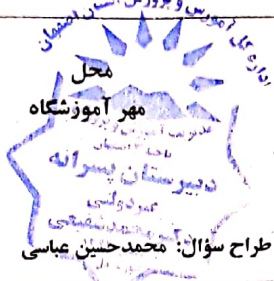 اداره کل آموزش و پرورش استان اصفهان
محل
مهر آموزشگاه
دبیرستان پسرانه
غیردولتی
طراح سؤال: محمدحسین عباسی